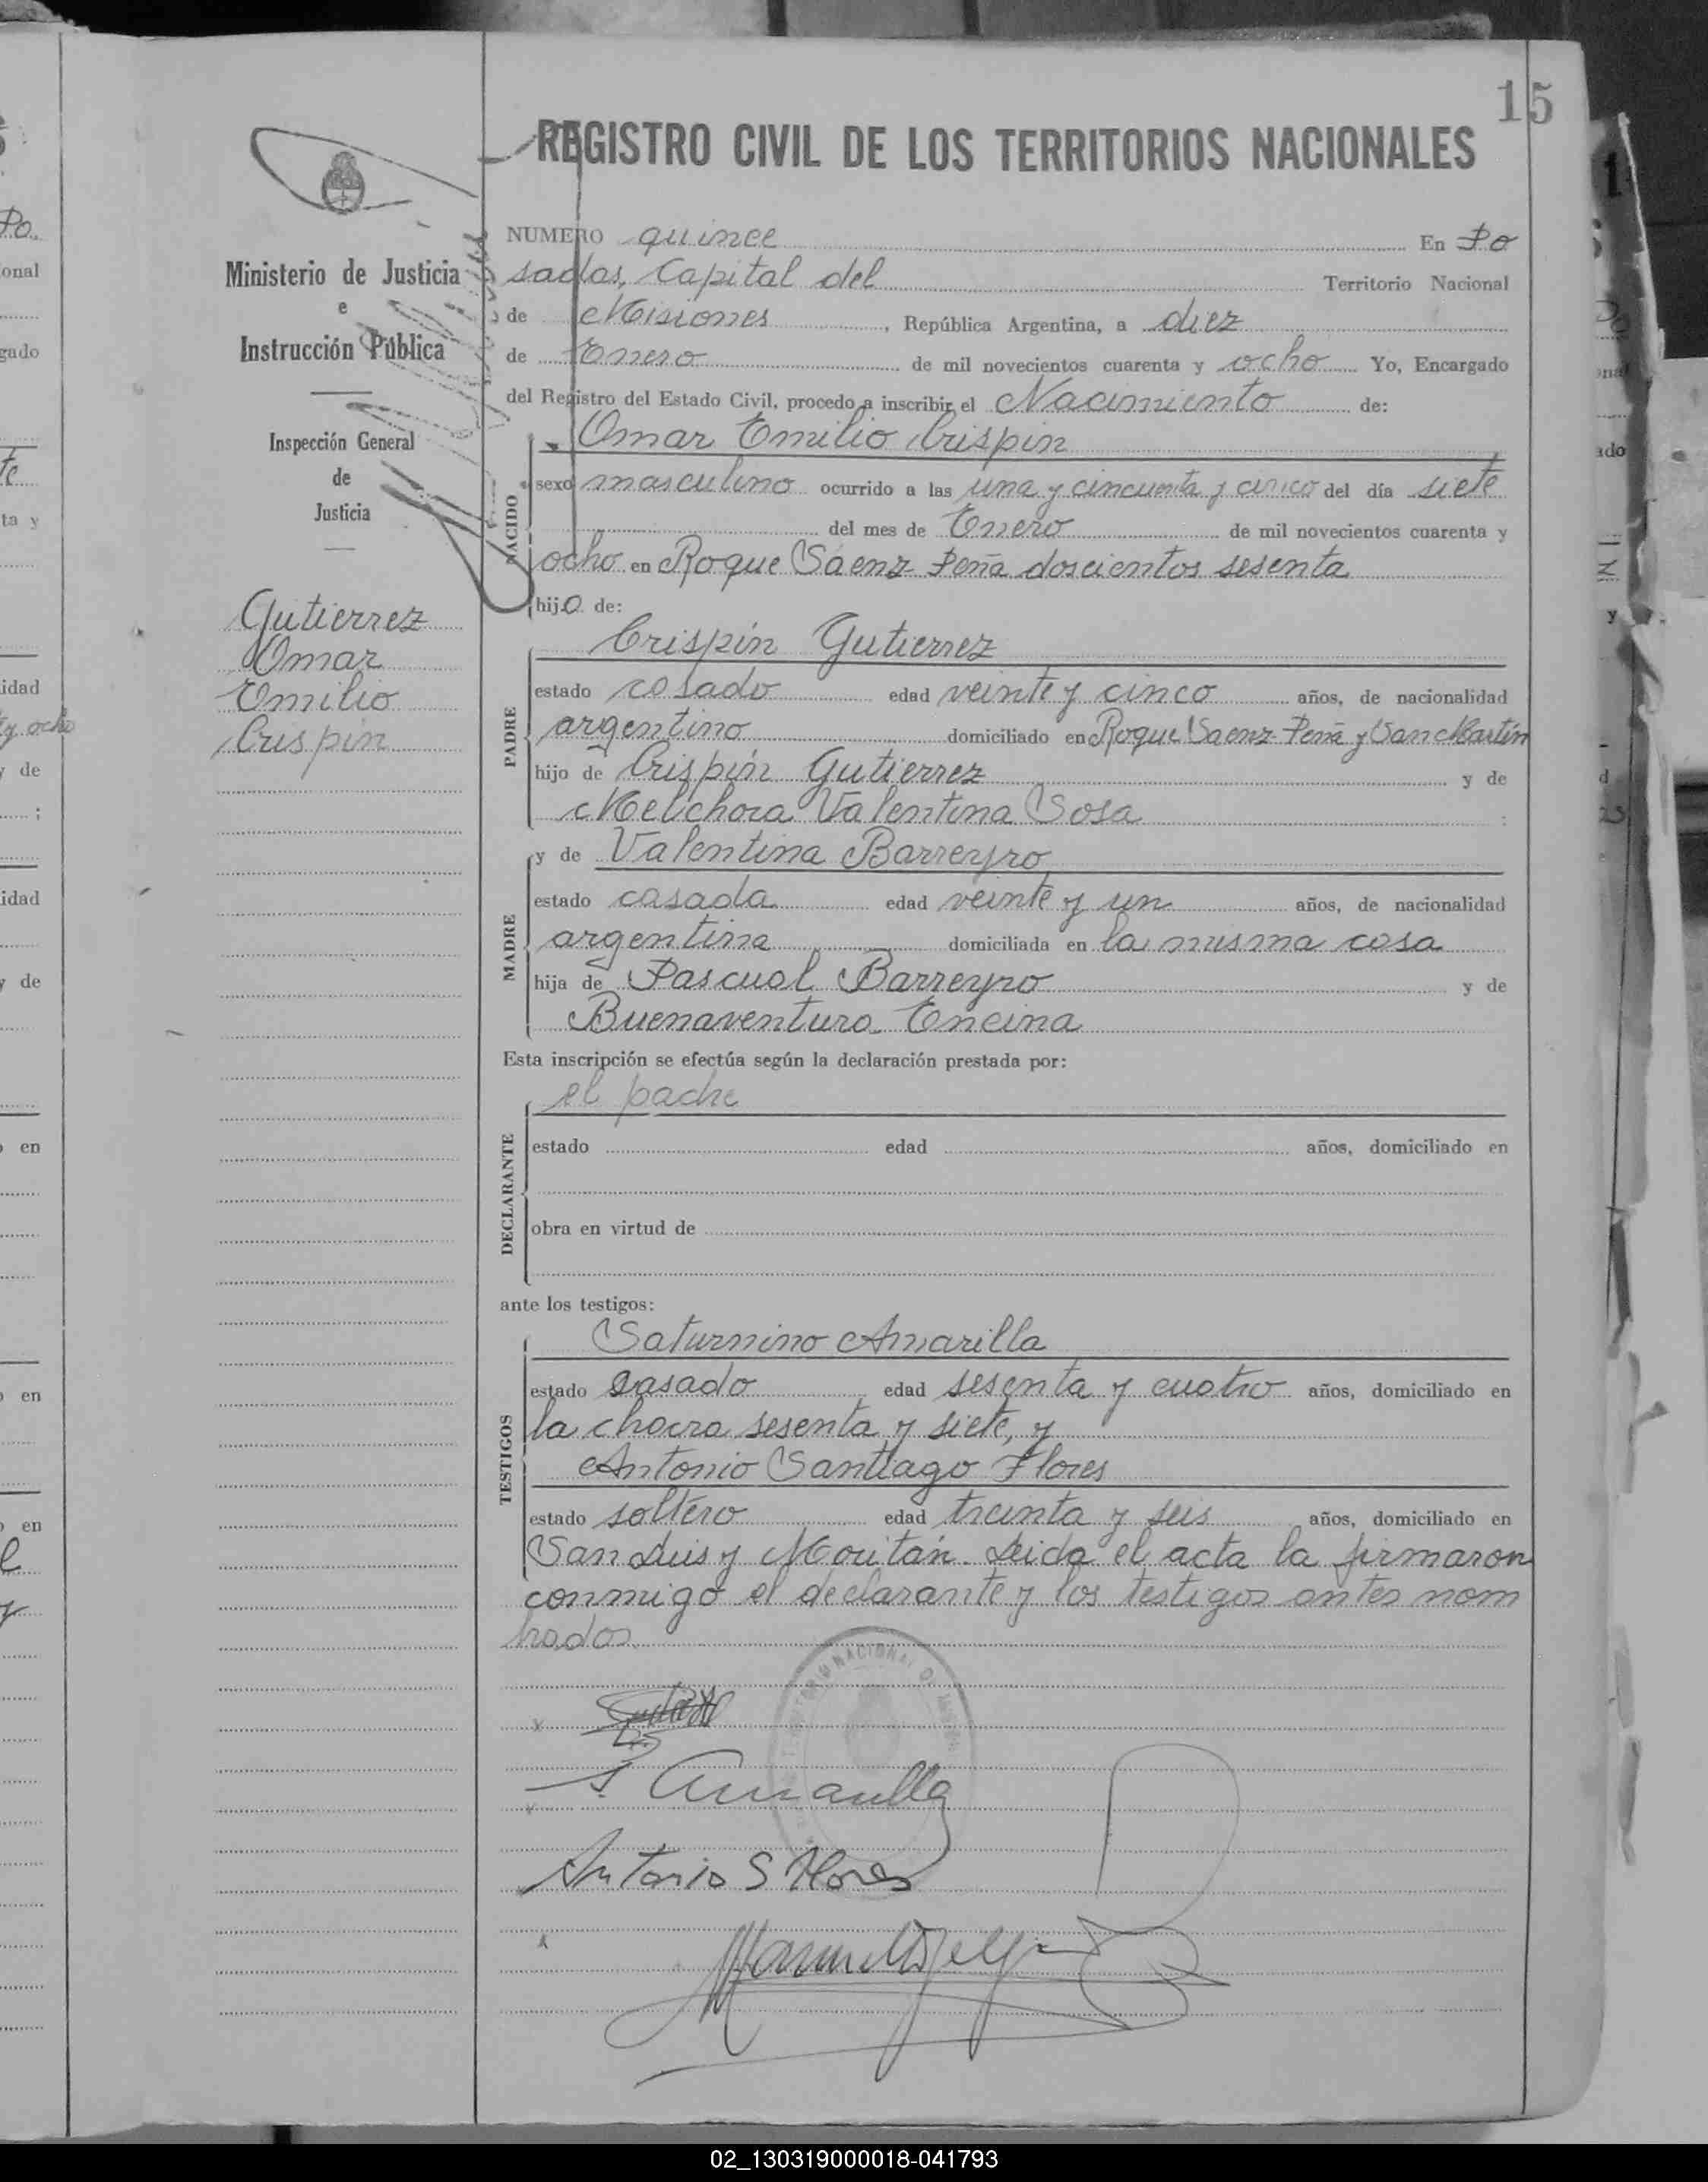 15
REGISTRO CIVIL DE LOS TERRITORIOS NACIONALES
Ministerio de Justicia
e
Instrucción Pública
Inspección General
de
Justicia
Gutierrez
Omar
Emilio
Crispin
NUMERO quince En Po
sadas, Capital del Territorio Nacional
de Misiones, República Argentina, a diez
de Enero de mil novecientos cuarenta y ocho Yo, Encargado
del Registro del Estado Civil, procedo a inscribir el Nacimiento de:
NACIDO
Omar Emilio Crispin
sexo masculino ocurrido a las una y cincuenta y cinco del día siete
del mes de Enero de mil novecientos cuarenta y
ocho en Roque Sáenz Peña doscientos sesenta
hijo de:
PADRE
Crispín Gutierrez
estado casado edad veinte y cinco años, de nacionalidad
argentino domiciliado en Roque Saenz Peña y San Martín
hijo de Crispín Gutierrez y de
Melchora Valentina Sosa :
MADRE
y de Valentina Barreyro
estado casada edad veinte y un años, de nacionalidad
argentina domiciliada en la misma casa
hija de Pascual Barreyro y de
Buenaventura Encina
Esta inscripción se efectúa según la declaración prestada por:
DECLARANTE
el padre
estado edad años, domiciliado en
obra en virtud de
ante los testigos:
TESTIGOS
Saturnino Amarilla
estado casado edad sesenta y cuatro años, domiciliado en
la chacra sesenta y siete, y
Antonio Santiago Flores
estado soltero edad treinta y seis años, domiciliado en
San Luis y Moritán. Leida el acta la firmaron
conmigo el declarante y los testigos antes nom
brados.
S Amarilla
Antonio S Flores
02_130319000018-041793